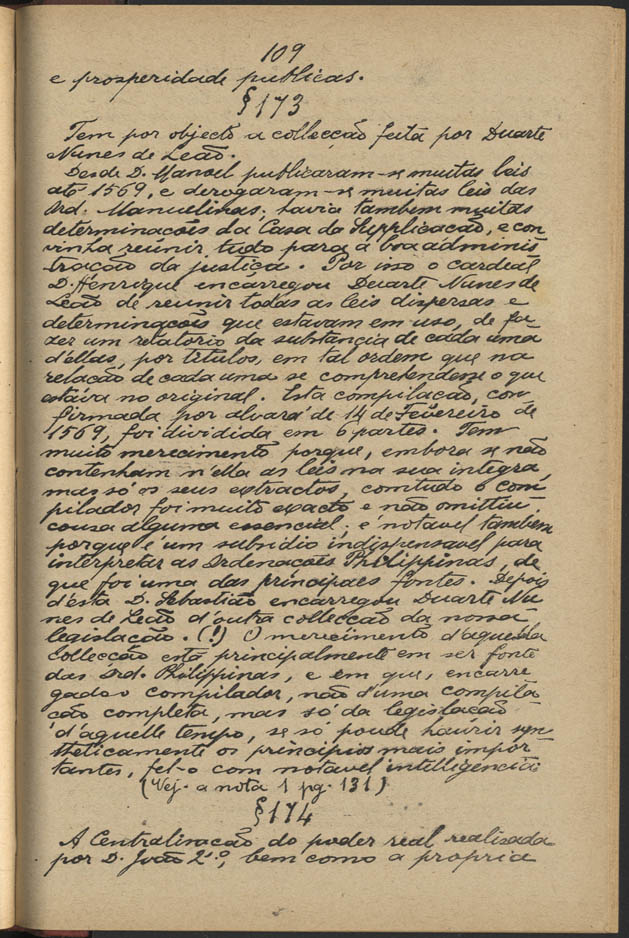 109
e prosperidade publicas.
§ 173
Tem por objecto a collecção feita por Duarte
Nunes de Leão.
Desde D. Manoel publicaram-se muitas leis
até 1569, e derogaram-se muitas leis das
Ord. Manuelinas; havia tambem muitas
determinações da Casa da Supplicação, e con
vinha reunir tudo para a boa adminis
tração da justiça. Por isso o cardeal
D. Henrique encarregou Duarte Nunes de
Leão de reunir todas as leis dispersas e
determinações que estavam em uso, de fa-
zer um relatorio da substancia de cada uma
d'ellas, por titulos, em tal ordem que na
relação de cada uma se comprehendesse o que
estava no original. Esta compilação, con
firmada por alvará de 14 de Fevereiro de
1569, foi dividida em 6 partes. Tem
muito merecimento porque, embora se não
contenham n'ella as leis na sua integra,
mas só os seus extractos, comtudo o com
pilador foi muito exacto e não omittiu
cousa alguma essencial; e notavel tambem
porque é um subsidio indispensavel para
interpretar as Ordenações Philippinas, de
que foi uma das principaes fontes. Depois
d'ésta D. Sebastião encarregou Duarte Nu
nes de Leão d'outra collecção da nossa
legislação. (!) O merecimento d'aquella
collecção está principalmente em ser fonte
das Ord. Philippinas, e em que, encarre
gado o compilador, não d'uma compila
ção completa, mas só da legislação
d'aquelle tempo, se só poude haurir syn
theticamente os principios mais impor
tantes, fel-o com notavel intelligencia.
(Vej. a nota 1 pg. 131)
§ 174
A Centralisação do poder real realisada
por D. João 2.º, bem como a propria